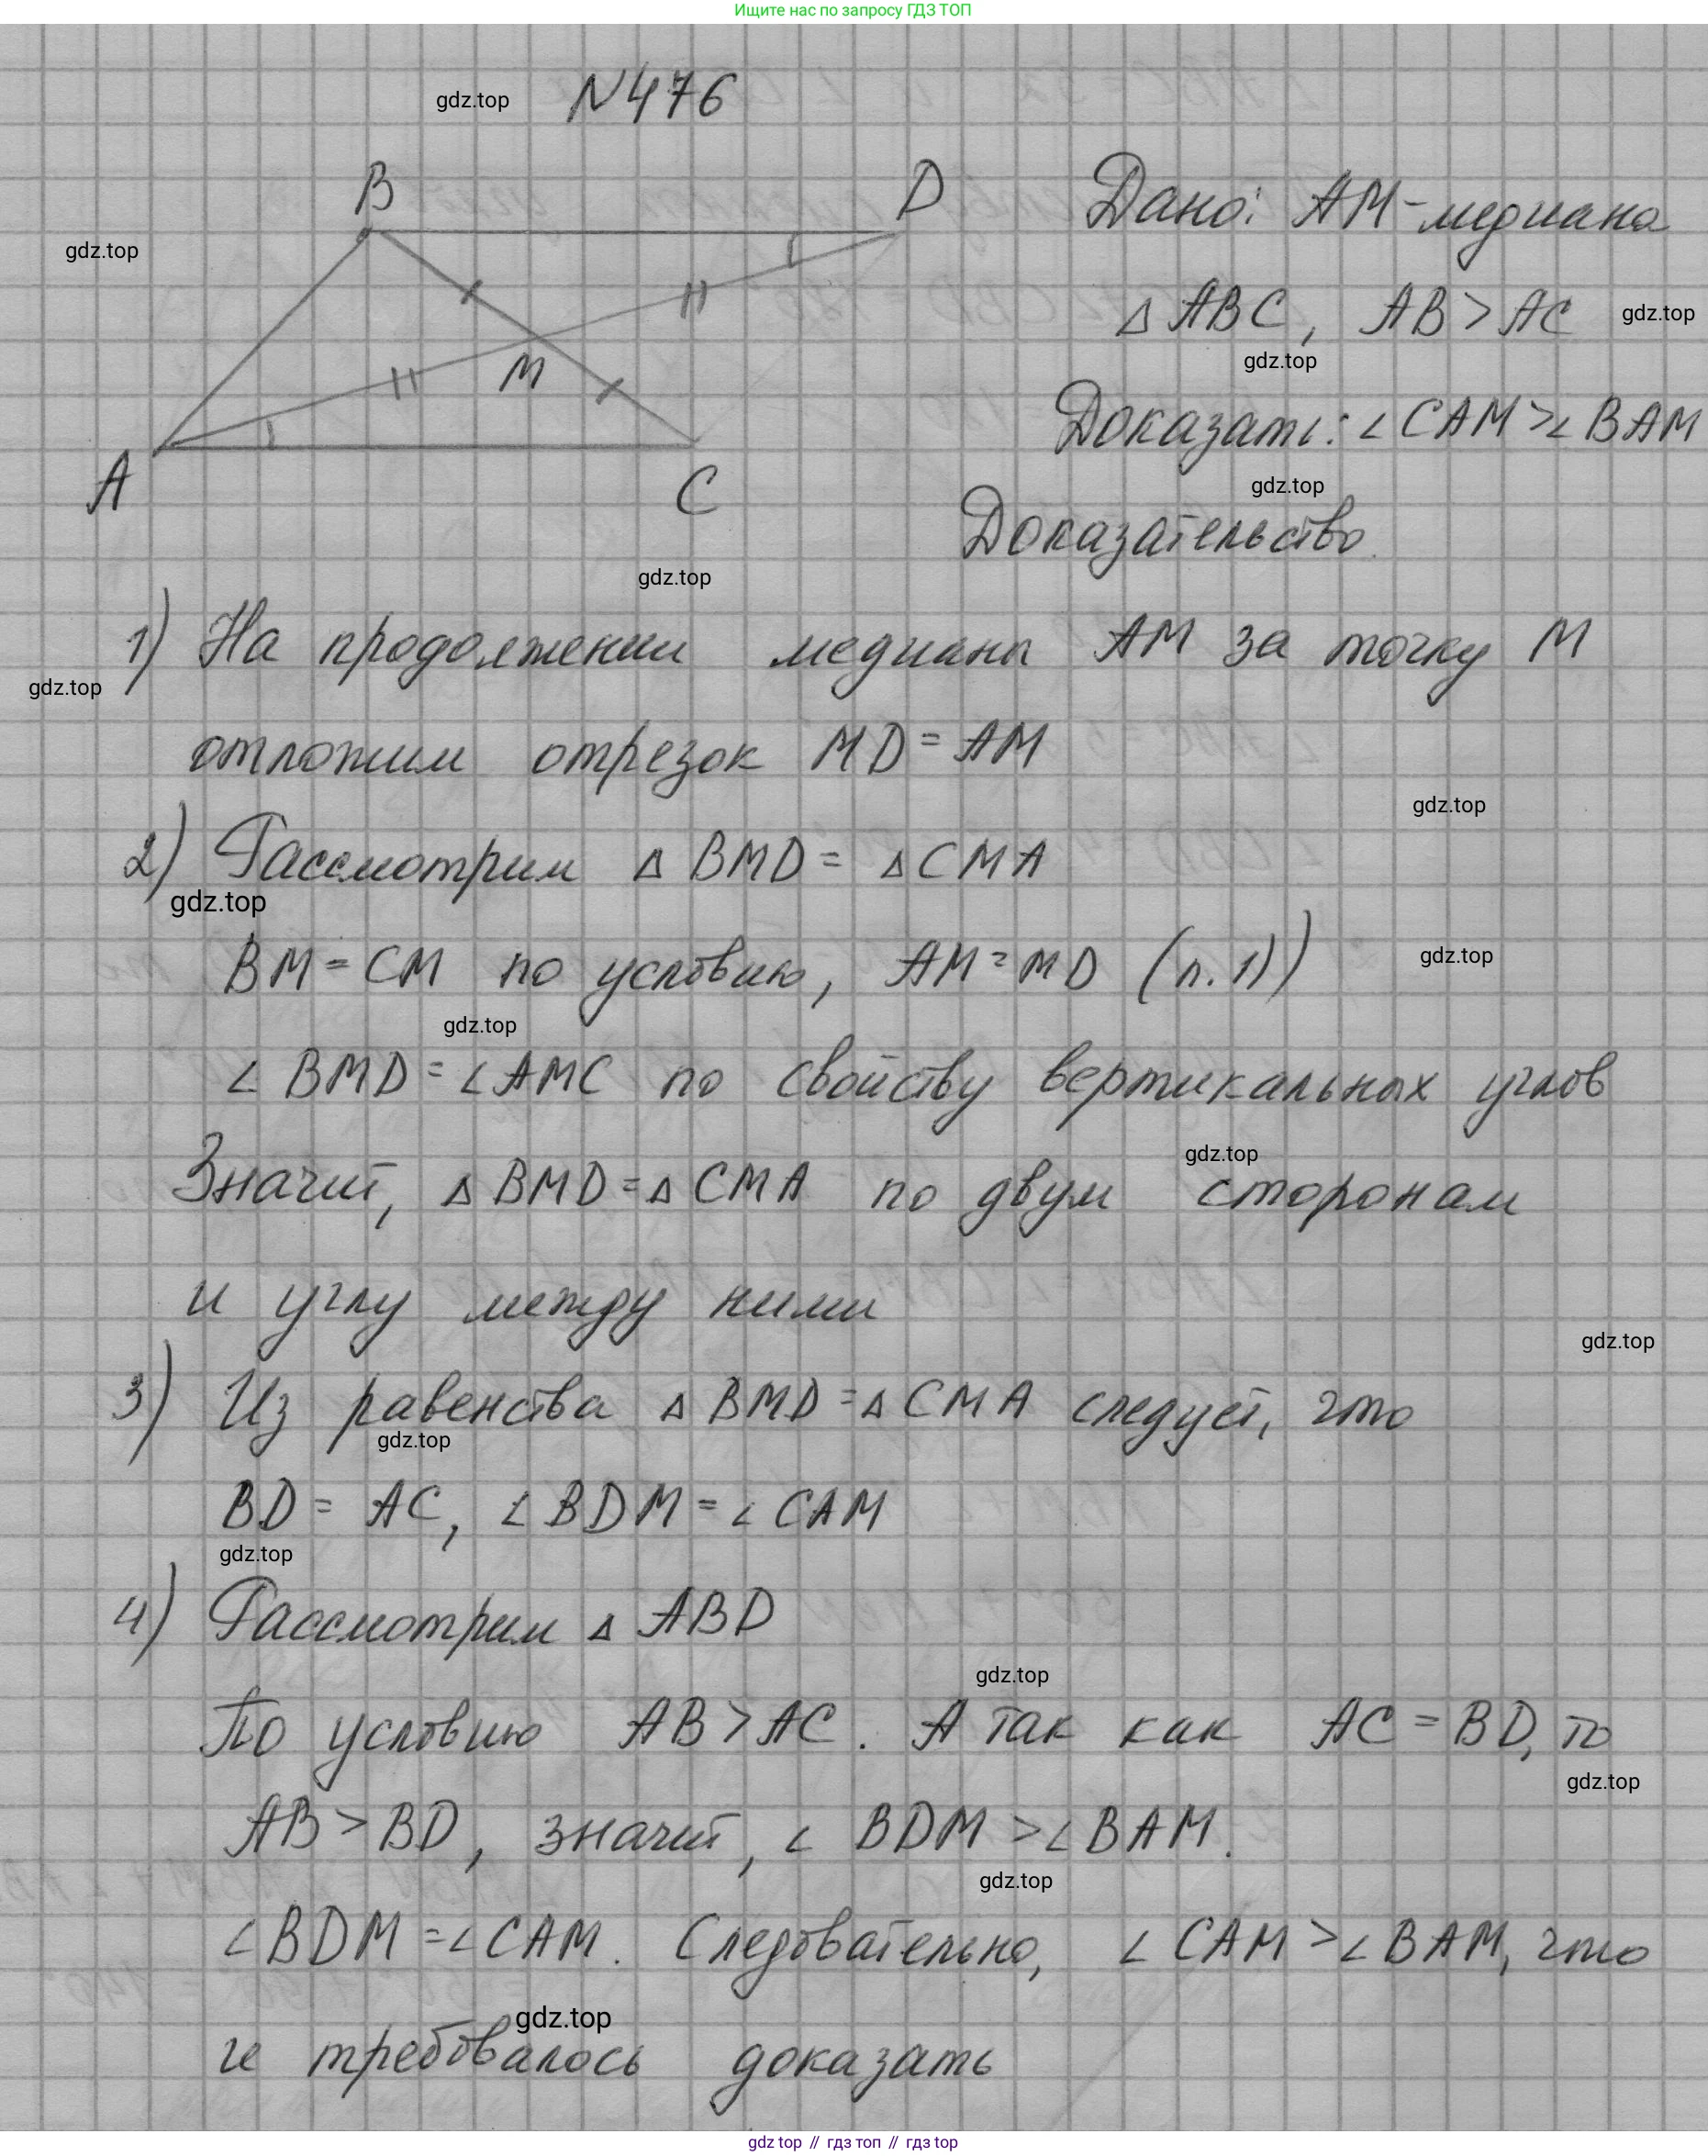 Ищите нас по запросу ГДЗ ТОП
gdz.top
N476
B
D
A
M
C
gdz.top
Дано: AM-медиана
△ ABC, AB > AC
gdz.top
gdz.top
Доказать: ∠CAM > ∠BAM
gdz.top
Доказательство.
gdz.top
1) На продолжении медианы AM за точку M
gdz.top
отложим отрезок MD = AM
gdz.top
2) Рассмотрим △ BMD = △ CMA
gdz.top
BM = CM по условию, AM = MD (п. 1))
gdz.top
gdz.top
∠ BMD = ∠ AMC по свойству вертикальных углов
gdz.top
Значит, △ BMD = △ CMA по двум сторонам
и углу между ними
gdz.top
3) Из равенства △ BMD = △ CMA следует, что
gdz.top
BD = AC, ∠ BDM = ∠ CAM
gdz.top
4) Рассмотрим △ ABD
gdz.top
По условию AB > AC. А так как AC = BD, то
gdz.top
AB > BD, значит, ∠ BDM > ∠ BAM.
gdz.top
∠BDM = ∠CAM. Следовательно, ∠ CAM > ∠ BAM, что
gdz.top
и требовалось доказать
gdz top // гдз топ // gdz top